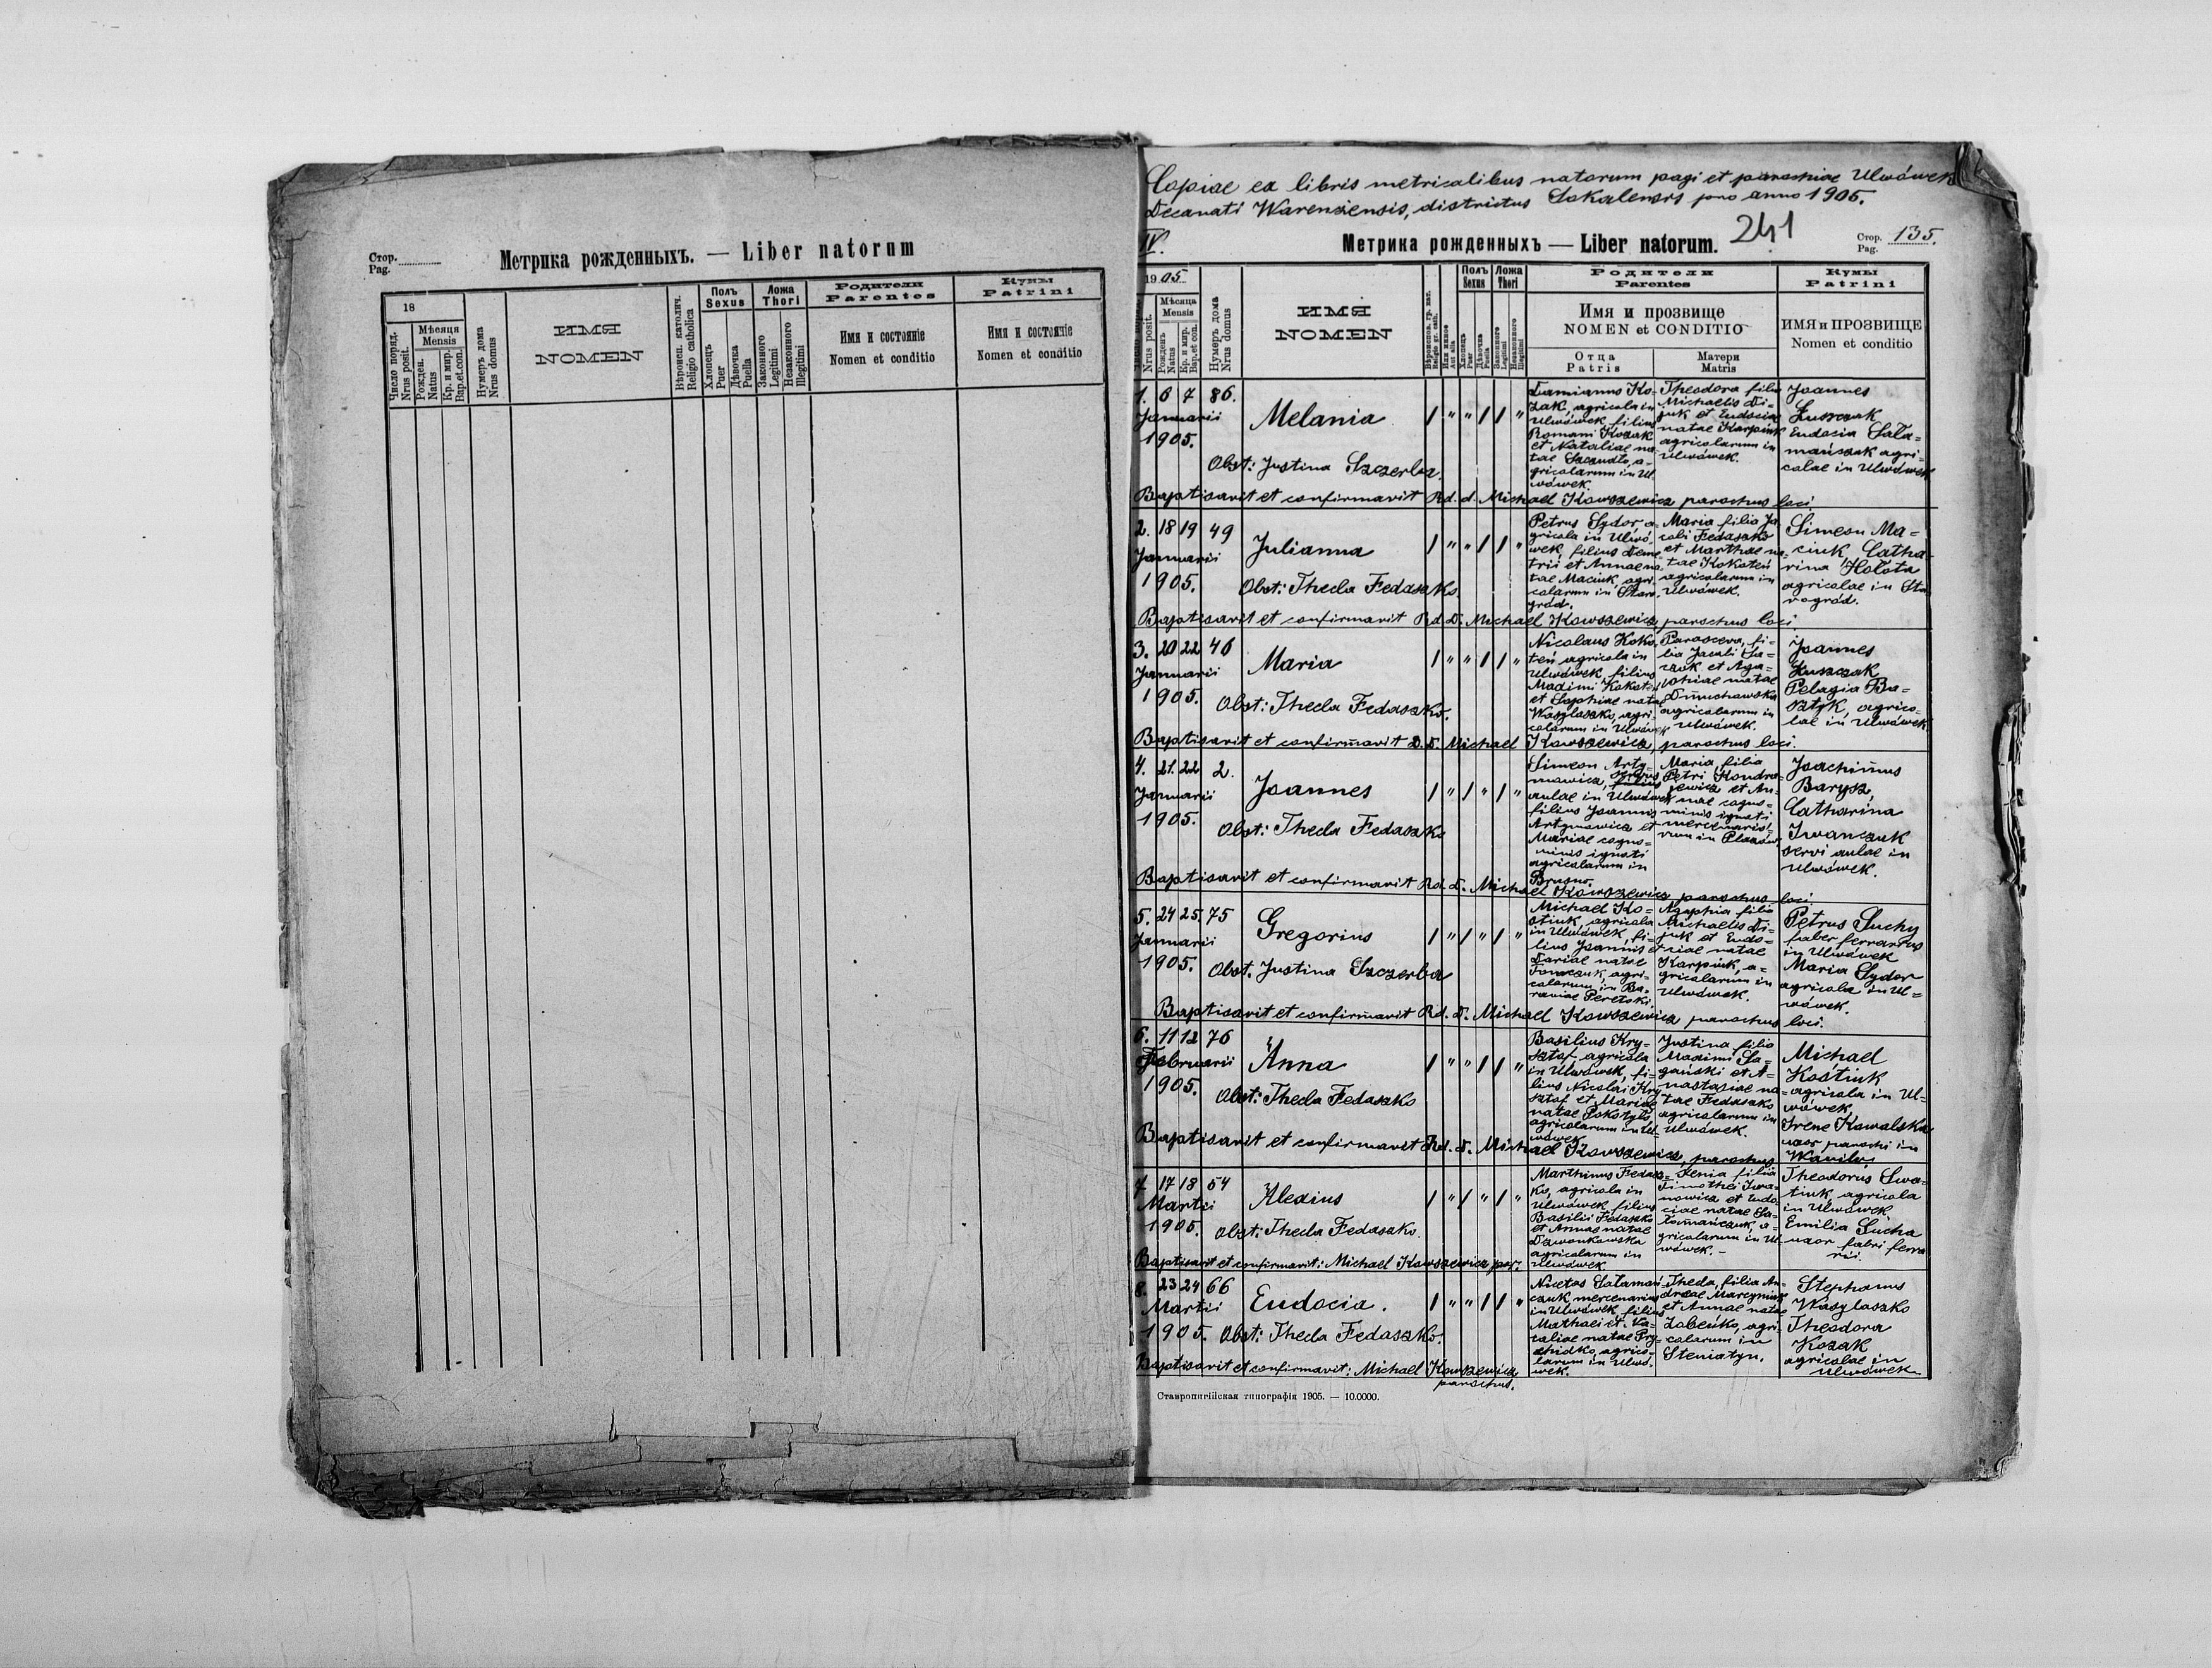 Стор.
Pag.
Метрика рожденныхъ. — Liber natorum
18
Число поряд.
Nrus posit.
Мѣсяця
Mensis
Рожден.
Natus
Кр. и мир.
Bap.et.con.
Нумеръ дома
Nrus domus
ИМЯ
NOMEN
Вѣроисп. католич.
Religio catholica
Полъ
Sexus
Хлопецъ
Puer
Дѣвочка
Puella
Ложа
Thori
Законного
Legitimi
Незаконного
Illegitimi
Родители
Parentes
Имя и состояніе
Nomen et conditio
Кумы
Patrini
Имя и состоячіе
Nomen et conditio
Copiae ex libris metricalibus natorum pagi et parochiae Ulwówek
Decanati Warensiensis, districtus Sokalensis pro anno 1905.
IV.
Метрика рожденныхъ — Liber natorum.
241
Стор.
Pag.
135.
1905
Nrus posit.
Мѣсяця
Mensis
Рожденъ
Natus
Кр. и мир.
Bap.et con.
Нумеръ дома
Nrus domus
ИМЯ
NOMEN
Religio gr. cath.
Или инное
Aut alia
Полъ
Sexus
Хлопецъ
Puer
Дѣвочка
Puella
Ложа
Thori
Законного
Legitimi
Незаконного
Illegitimi
Родители
Parentes
Имя и прозвище
NOMEN et CONDITIO
Отца
Patris
Матери
Matris
Кумы
Patrini
ИМЯ и ПРОЗВИЩЕ
Nomen et conditio
1. 6 7 86.
Januarii
1905.
Melania
Obst: Justina Szczerba.
Damianus Ko-
zak, agricola in
Ulwówek, filius
Romani Kozak
et Nataliae na-
tae Szczudło, a-
gricolarum in Ul-
wówek.
Theodora filia
Michaelis Di-
juk et Eudociae
natae Karpiuk
agricolarum in
Ulwówek.
Joannes
Łuszczak
Eudocia Sała-
mańczak agri-
colae in Ulwówek
Baptisavit et confirmavit Rd. d. Michael Kowszewicz parochus loci.
2. 18 19 49
Januarii
1905.
Julianna
Obst: Thecla Fedaszko.
Petrus Sydor a-
gricola in Ulwó-
wek, filius Deme-
trii et Annae na-
tae Maciuk, agri-
colarum in Staro-
gród.
Maria filia Ja-
cobi Fedaszko
et Marthae na-
tae Kokoteń
agricolarum in
Ulwówek.
Simeon Ma-
ciuk, Catha-
rina Hołota
agricolae in Sta-
rogród.
Baptisavit et confirmavit Rd. D. Michael Kowszewicz parochus loci.
3. 20 22 46
Januarii
1905.
Maria
Obst: Thecla Fedaszko.
Nicolaus Koko-
teń agricola in
Ulwówek, filius
Maximi Kokoteń
et Sophiae natae
Wasylaszko, agri-
colarum in Ulwówek
Parasceva, fi-
lia Jacobi
et Aga-
phiae natae
Dmuchowska
agricolarum in
Ulwówek.
Joannes
Łuszczak
Pelagia Ba-
sztyk, agrico-
lae in Ulwówek.
Baptisavit et confirmavit D. D. Michael Kowszewicz, parochus loci.
4. 21. 22 2.
Januarii
1905.
Joannes
Obst: Thecla Fedaszko
Simeon Arty-
mowicz, servus
aulae in Ulwówek
filius Joannis
Artymowicz et
Mariae cogno-
minis ignoti
agricolarum in
Brusno.
Maria, filia
Petri Kondra-
jewicz et An-
nae cogno-
minis ignoti
mercenario-
rum in Płazów
Joachimus
Barysz,
Catharina
Iwanczuk
servi aulae in
Ulwówek.
Baptisavit et confirmavit Rd. D. Michael Kowszewicz parochus loci.
5. 24 25. 75
Januarii
1905.
Gregorius
Obst. Justina Szczerba
Michael Ko-
stiuk, agricola
in Ulwówek, fi-
lius Joannis et
Dariae natae
agri-
colarum in Ba-
raniae Peretoki.
Agaphia filia
Michaelis Di-
juk et Eudo-
ciae natae
Karpiuk, a-
gricolarum in
Ulwówek.
Petrus Suchy
faber ferrarius
in Ulwówek
Maria Sydor
agricola in Ul-
wówek.
Baptisavit et confirmavit Rd. D. Michael Kowszewicz parochus loci.
6. 11 12 76
Februarii
1905.
Anna
Obst: Thecla Fedaszko
Basilius Kry-
sztof agricola
in Ulwówek, fi-
lius Nicolai Kry-
sztof et Mariae
natae Pokotyło
agricolarum in Ul-
wówek
Justina filia
Maximi Sa-
gański et A-
nastasiae na-
tae Fedaszko
agricolarum in
Ulwówek.
Michael
Kostiuk
agricola in Ul-
wówek,
Irene Kowalska
uxor parochi in
Waniłow
Baptisavit et confirmavit Rd. D. Michael Kowszewicz, parochus
7 17 18 54
Martii
1905.
Alexius
Obst: Thecla Fedaszko.
Marthinus Fedasz-
ko, agricola in
Ulwówek filius
Basilii Fedaszko
et Annae natae
Dzwonkowska
agricolarum in
Ulwówek
Xenia, filia
Timothei Iwa-
nowicz et Eudo-
ciae natae Sa-
łomańczuk, a-
gricolarum in Ul-
wówek. -
Theodorus Swa-
tiuk, agricola
in Ulwówek
Emilia Sucha
uxor fabri ferra
rii.
Baptisavit et confirmavit: Michael Kowszewicz par.
8. 23 24 66
Martii
1905.
Eudocia.
Obst: Thecla Fedaszko.
Nicetas Sałamań-
czuk mercenarius
in Ulwówek, filius
Mathaei et Na-
taliae natae Pry-
chidko, agrico-
larum in Ulwó-
wek.
Thecla, filia An-
dreae Marcyniuk
et Annae natae
Zobeńko, agri-
colarum in
Steniatyn.
Stephanus
Wasylaszko
Theodora
Kozak
agricolae in
Ulwówek
Baptisavit et confirmavit: Michael Kowszewicz
parochus.
Ставропигійская типографія 1905. — 10.0000.